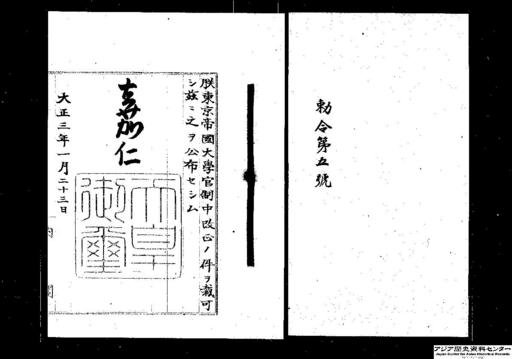 勅令第五號
朕東京帝國大學官制中改正ノ件ヲ裁可
シ茲ニ之ヲ公布セシム
嘉仁
天皇
御璽
大正三年一月二十三日
内閣
アジア歴史資料センター
Japan Center for Asian Historical Records